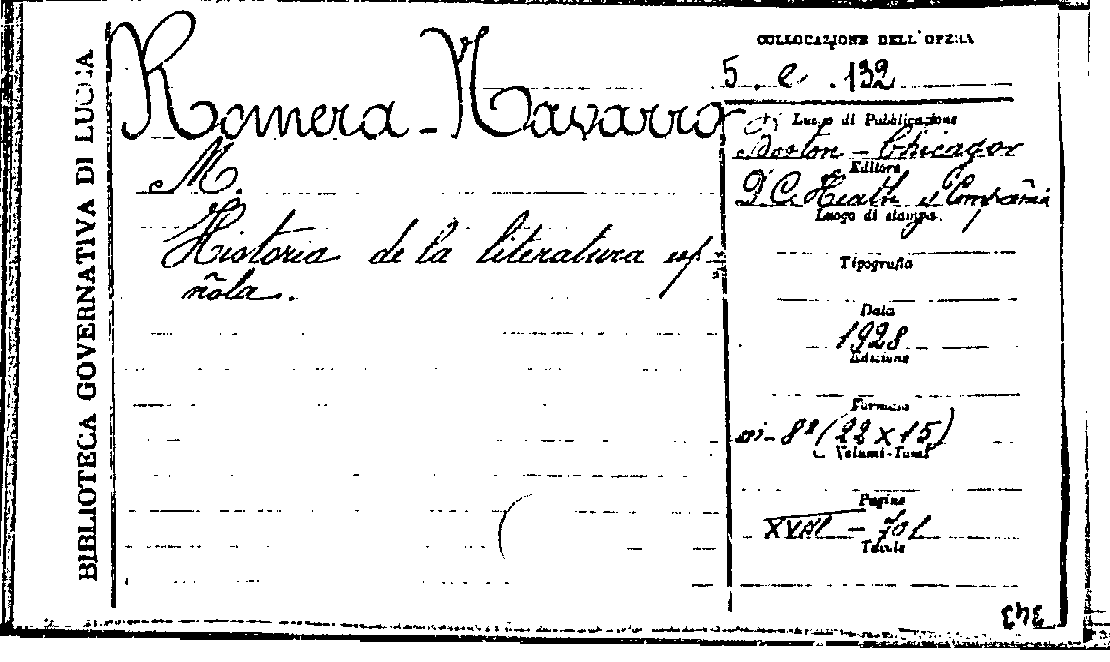 BIBLIOTECA GOVERNATIVA DI LUCCA
Romera - Navarro
M.
Historia de la literatura esp-
ñola.
COLLOCAZIONE DELL'OPERA
5. e. 132
Luogo di Pubblicazione
Boston - Chicago
Editore
D. C. Heath y Compañia
Luogo di stampa
Tipografia
Data
1928
Edizione
Formato
in-8º (22 x 15)
Volumi-Tomi
Pagine
XVIII - 701
Tavole